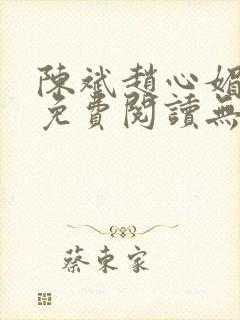 陳斌趙心媚
免費閱讀無
蔡東家